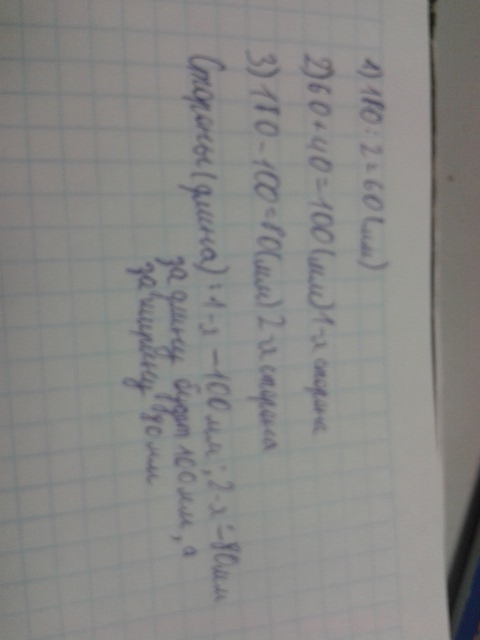 1) 180:2=60(мм)
2) 60+40=100(мм) 1-х сторона
3) 180-100=80(мм) 2-х сторона
Стороны(длина):1-х-100мм; 2-х-80мм
за длину будут 100 мм, а
за ширину 80 мм